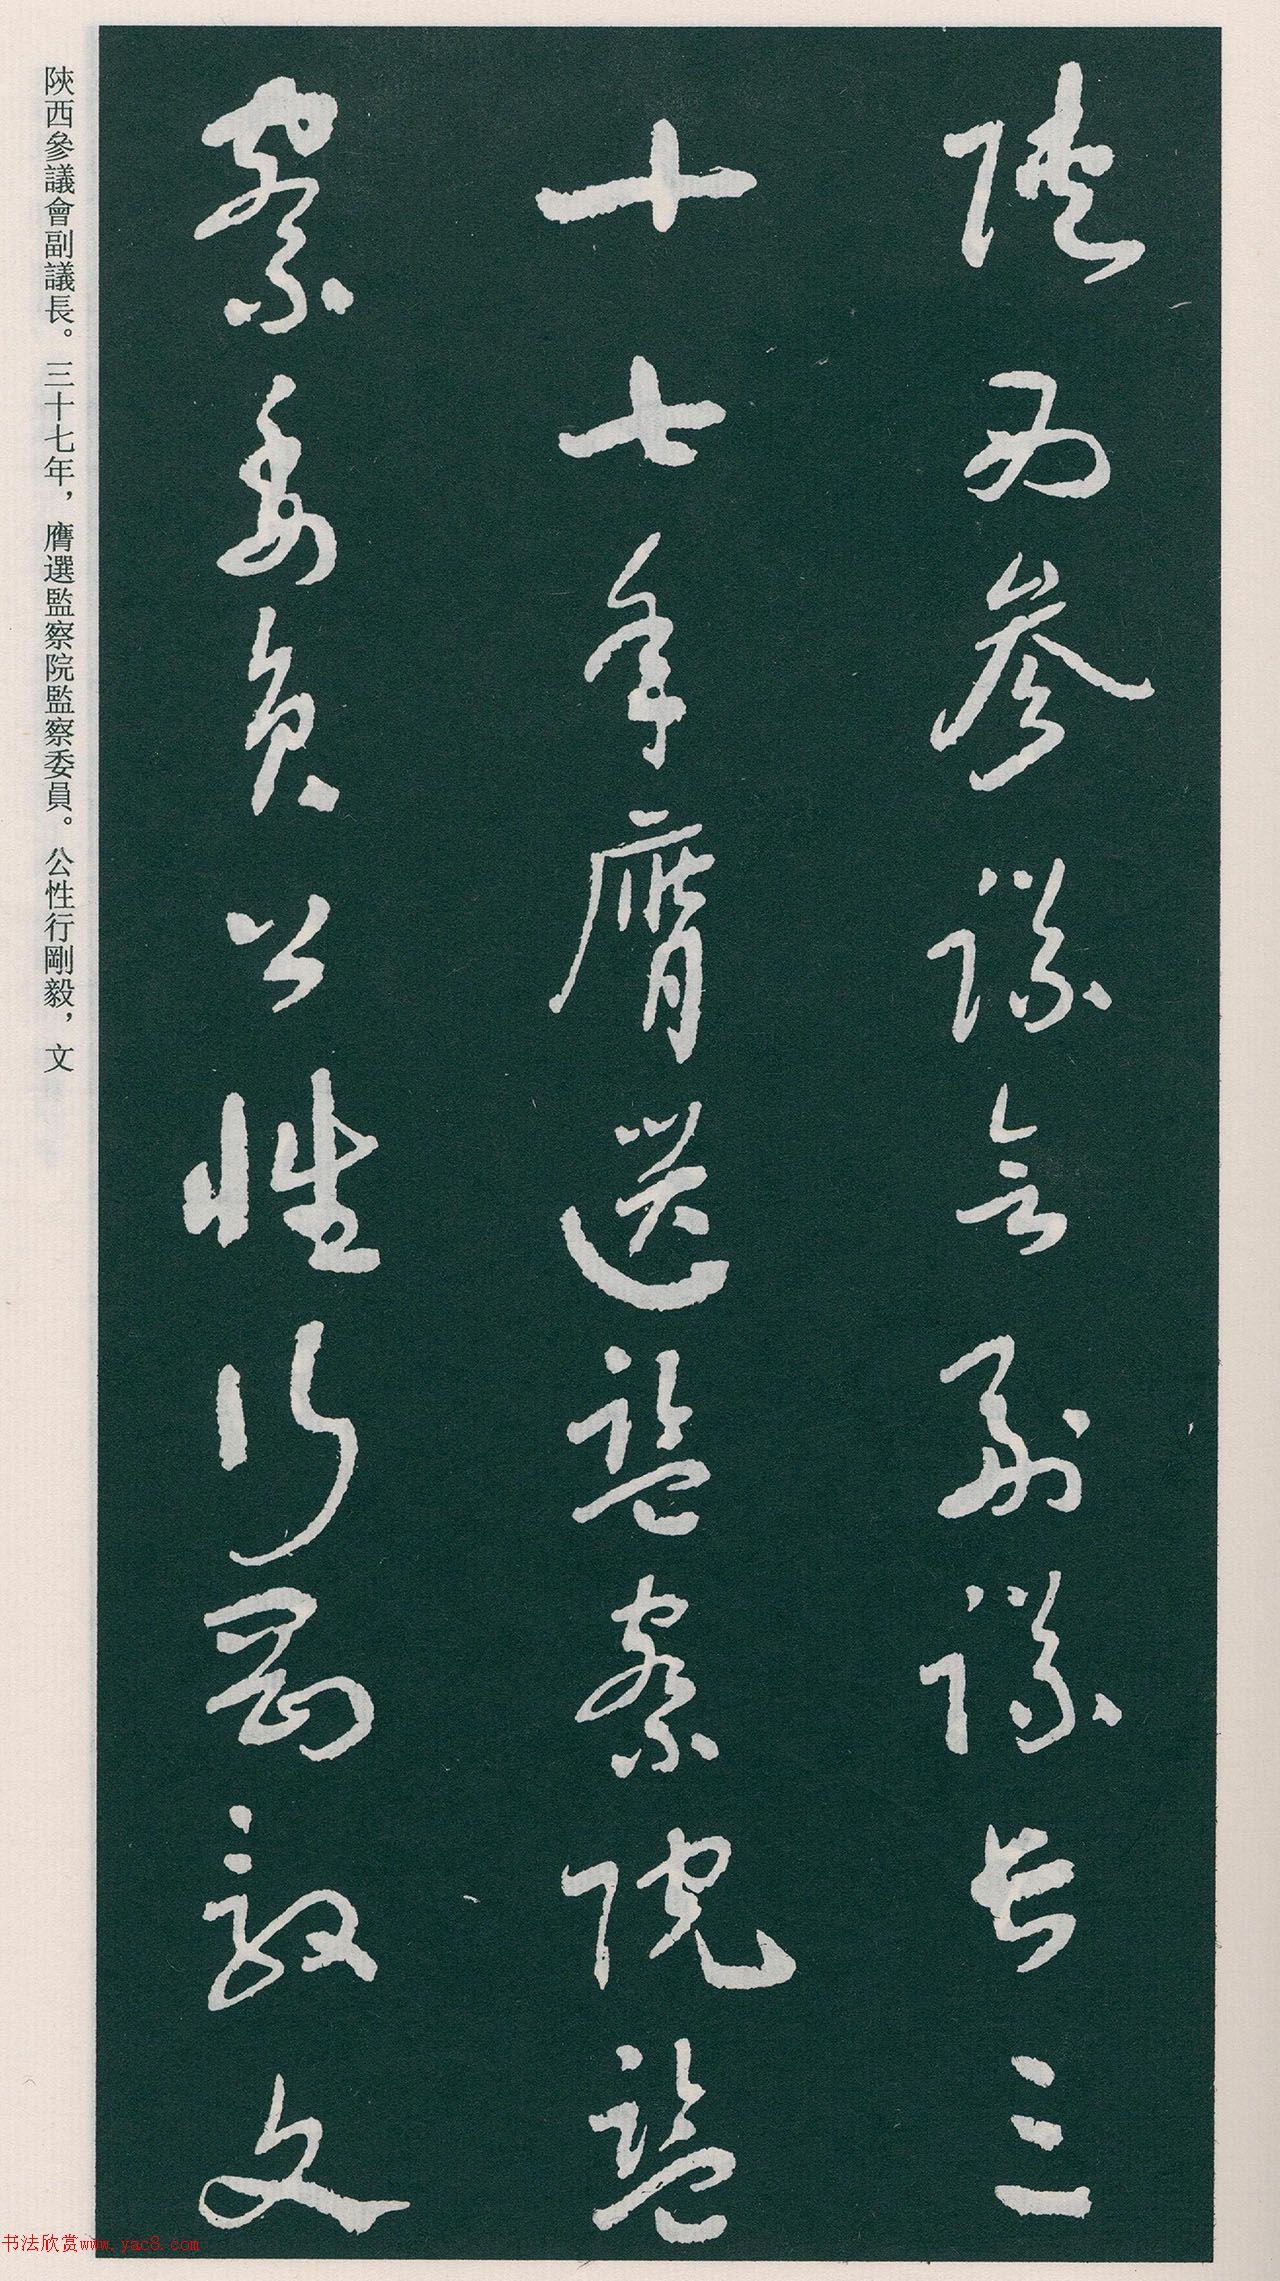 陝西參議會副議長三
十七年膺選監察院監
察委員公性行剛毅文
陝西參議會副議長。三十七年，膺選監察院監察委員。公性行剛毅，文
书法欣赏www.yac8.com